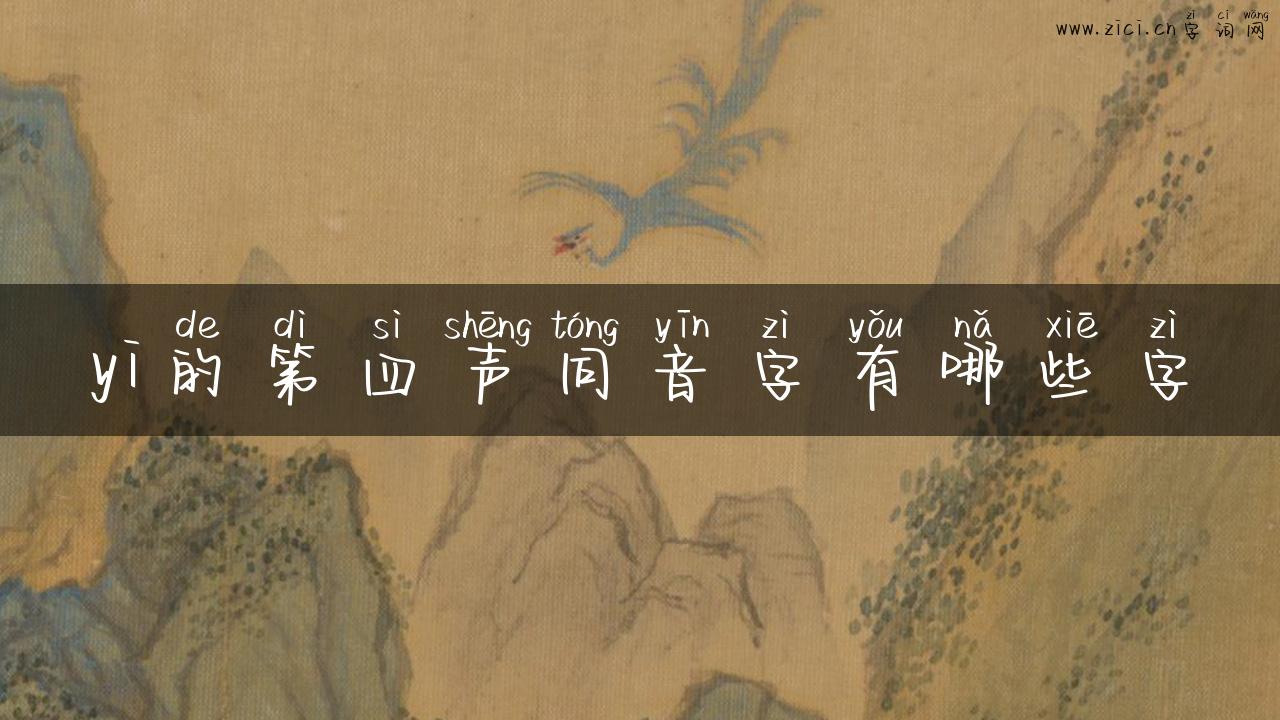 zì cí wǎng
www.zici.cn字词网
de dì sì shēng tóng yīn zì yǒu nǎ xiē zì
yì的第四声同音字有哪些字